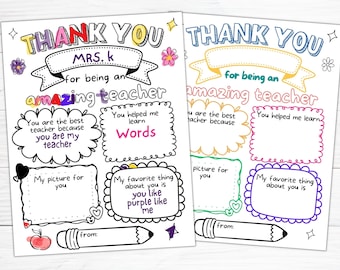 THANK YOU
MRS. k
for being an
amazing teacher
You are the best
teacher because
you are my
teacher
You helped me
learn
Words
My picture for
you
My favorite thing
about you is
you like
purple like
me
from:
THANK YOU
for being an
amazing teacher
You are the best
teacher because
You helped me
learn
My picture for
you
My favorite thing
about you is
from: